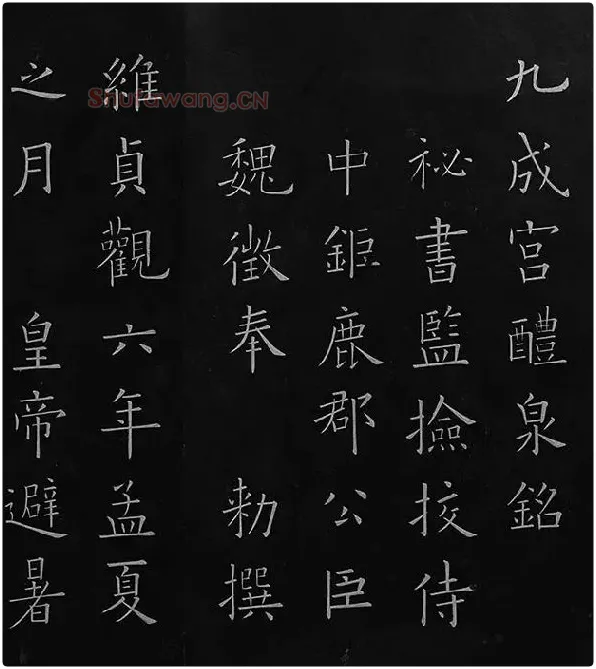 九成宮醴泉銘
祕書監撿挍侍
中鉅鹿郡公臣
魏徵奉 勅撰
維貞觀六年孟夏
之月 皇帝避暑
Shufawang.CN